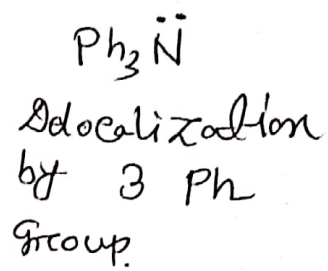 Ph₃N̈
Delocalization
by 3 Ph
Group.